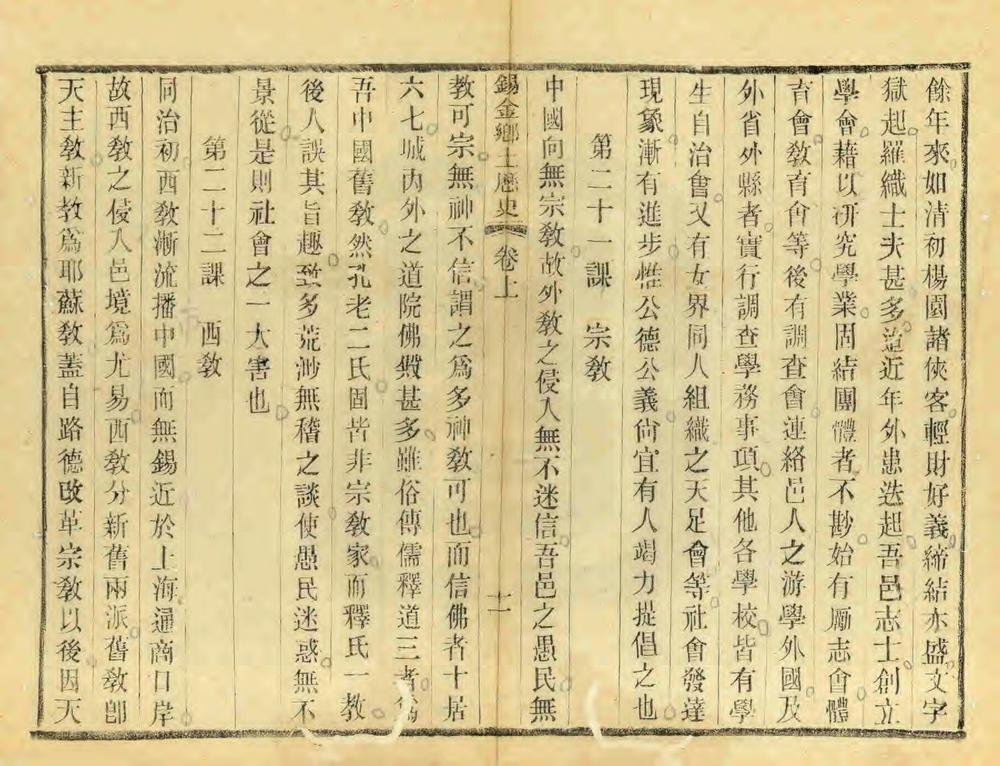 餘年來如清初楊園諸俠客輕財好義締結亦盛文字
獄起羅織士夫甚多迨近年外患迭起吾邑志士創立
學會藉以研究學業固結團體者不尠始有勵志會體
育會敎育會等後有調查會連絡邑人之游學外國及
外省外縣者實行調查學務事項其他各學校皆有學
生自治會又有女界同人組織之天足會等社會發達
現象漸有進步惟公德公義尙宜有人竭力提倡之也
第二十一課 宗敎
中國向無宗敎故外敎之侵入無不迷信吾邑之愚民無
錫金鄕土歷史 卷上 十一
敎可宗無神不信謂之爲多神敎可也而信佛者十居
六七城內外之道院佛殿甚多雖俗傳儒釋道三者爲
吾中國舊敎然孔老二氏固皆非宗敎家而釋氏一敎
後人誤其旨趣致多荒渺無稽之談使愚民迷惑無不
景從是則社會之一大害也
第二十二課 西敎
同治初西敎漸流播中國而無錫近於上海通商口岸
故西敎之侵入邑境爲尤易西敎分新舊兩派舊敎卽
天主敎新敎爲耶蘇敎蓋自路德改革宗敎以後因天